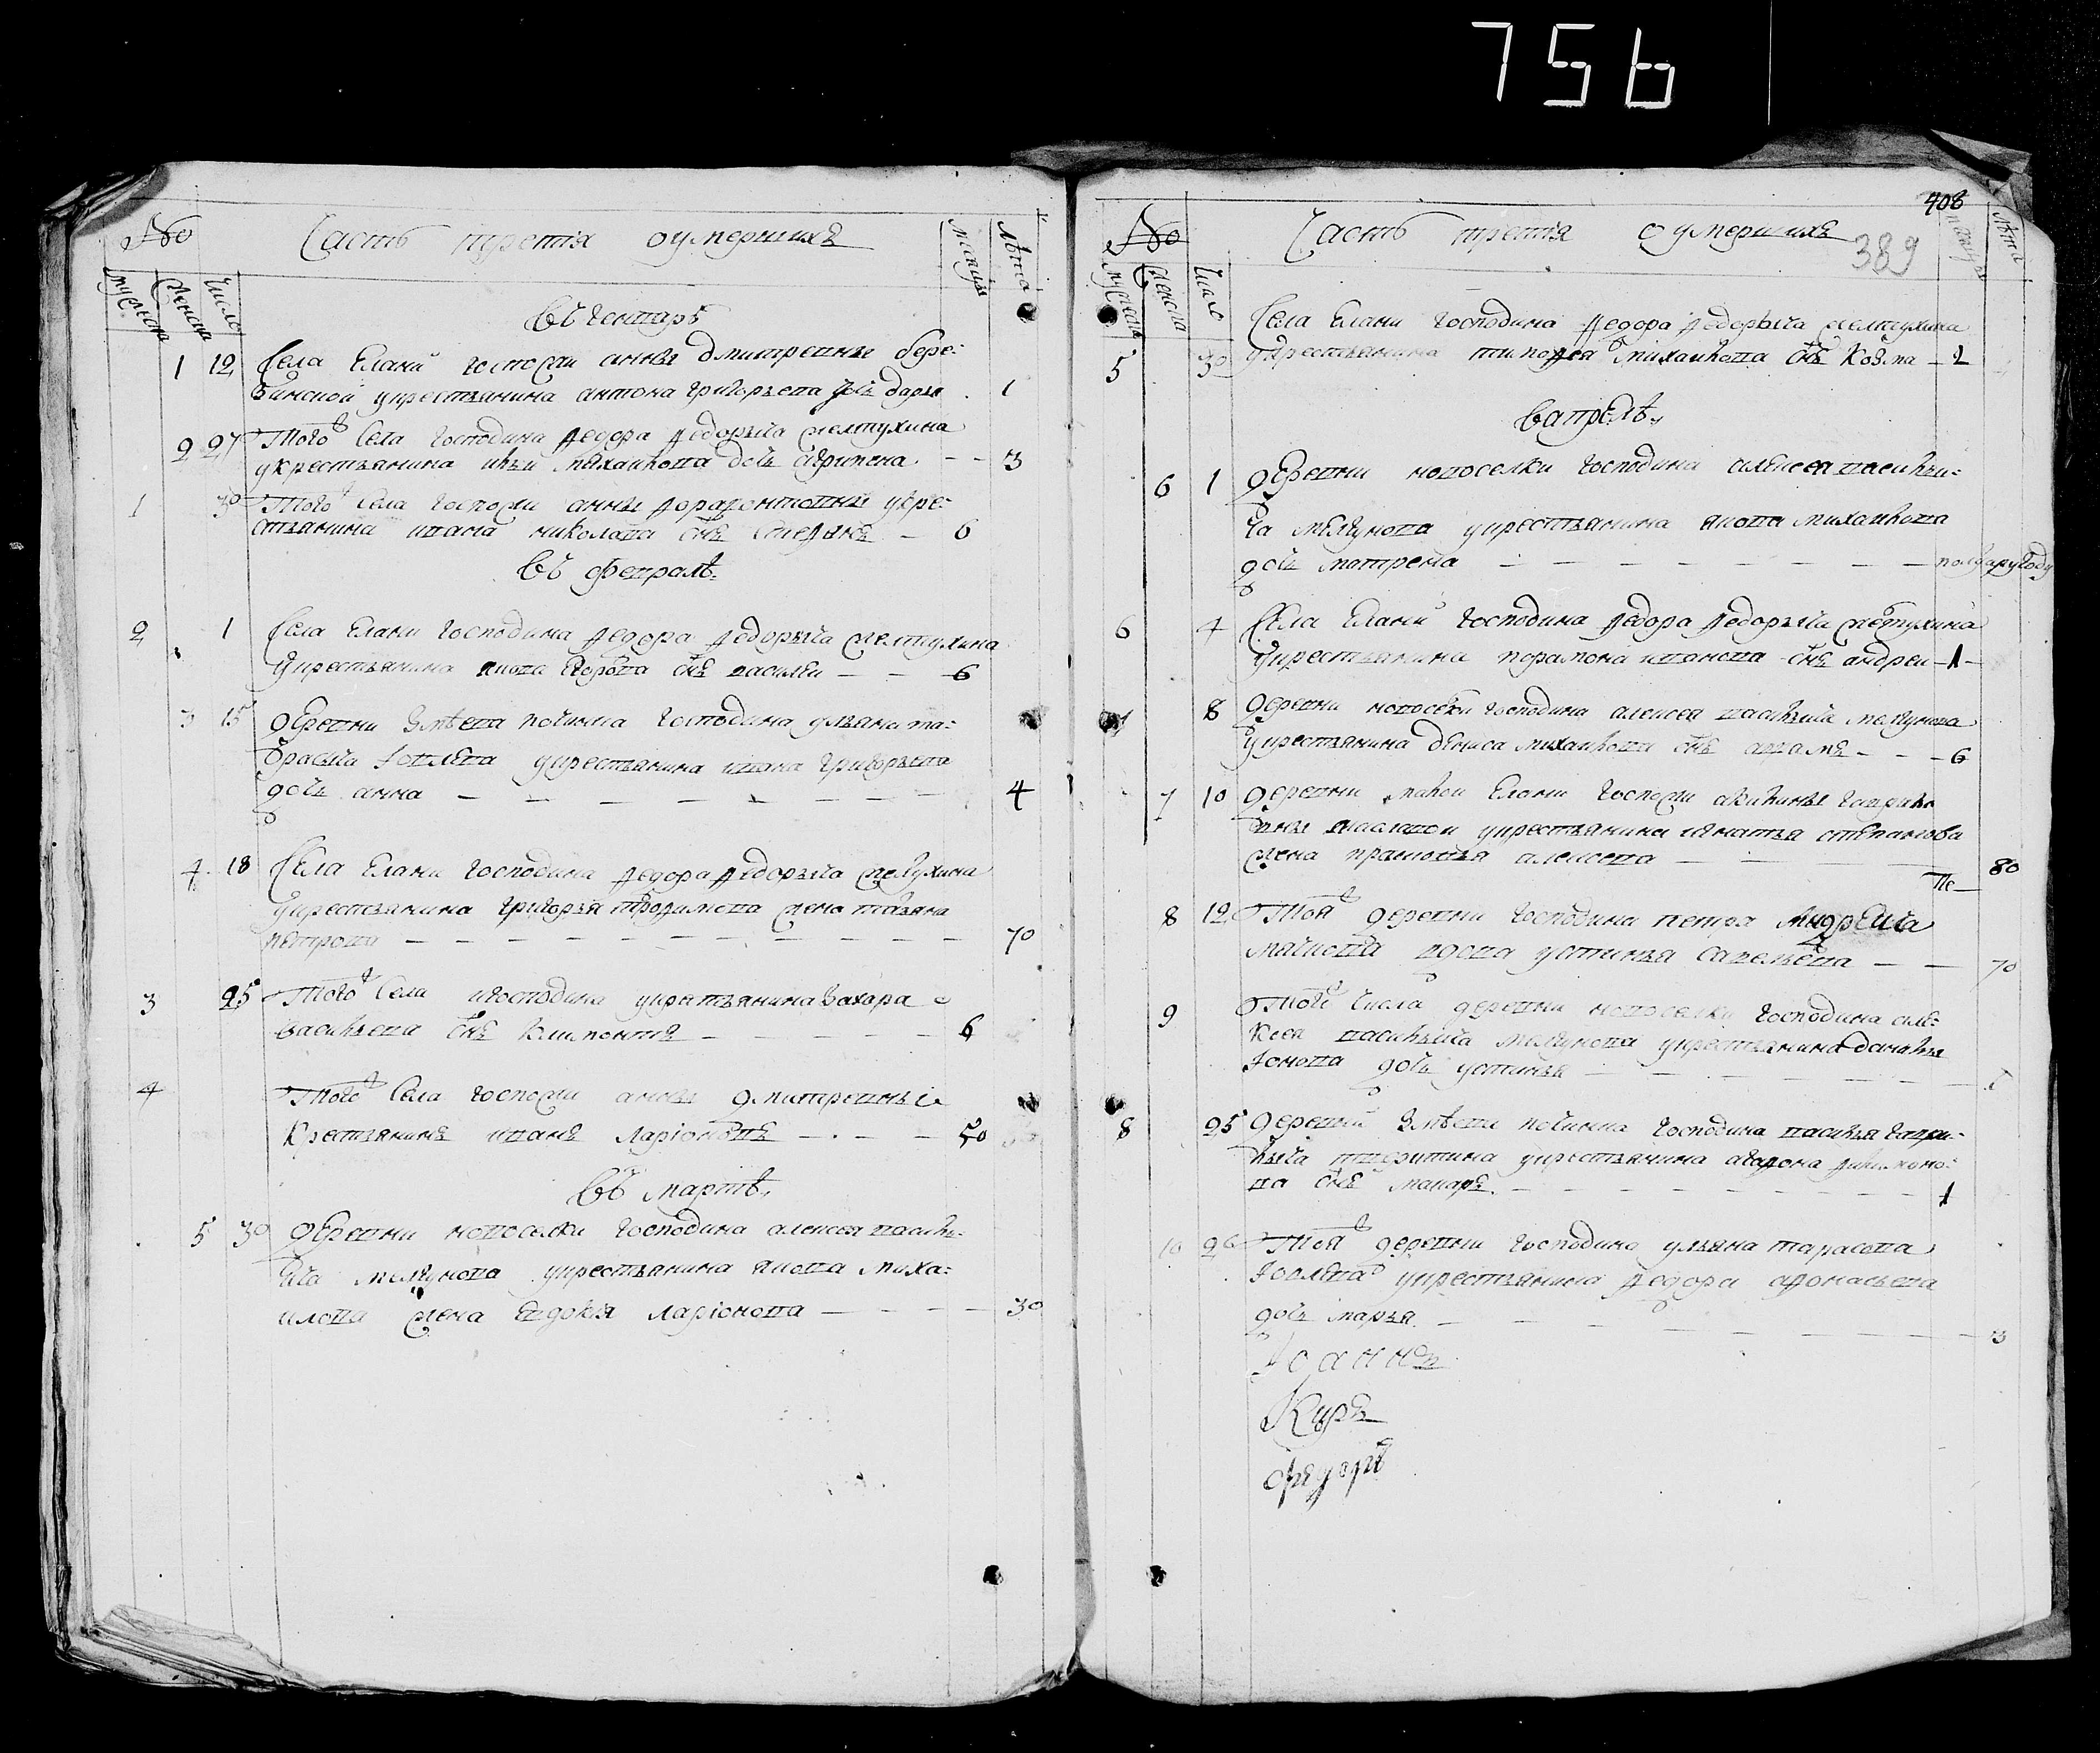 756
№ Часть третія оумершихъ
мужеска женска число мужцы лѣта
въ генваръ
1 12 Села Елани госпожи анны дмитревны бере-
зинской у крестьянина антона григорьева дочь дарья 1
2 27 Того Села господина федора федорыча желтухина
у крестьянина ильи михаилова дочь агрипена 3
1 30 Того Села госпожи анны у кре-
стьянина ивана николава снъ 6
въ февралѣ
2 1 Села Елани господина федора федорыча желтухина
у крестьянина якова снъ василеи 6
3 15 деревни починка господина ульяна та-
расыча Іовлева у крестьянина ивана григорьева
дочь анна 4
4 18 Села Елани господина федора федорыча желтухина
у крестьянина григорья трофимова жена татьяна
петрова 70
3 25 Того Села игосподина у крестьянина захара
васильева снъ 6
4 Того Села госпожи анны дмитревны
крестьянинъ иванъ ларіоновъ 50
въ мартѣ
5 30 деревни новоселки господина алексея василь-
ича мелгунова у крестьянина якова миха-
илова жена Евдокія ларіонова 30
408
№ Часть третія оумершихъ 389
мужеска женска число лѣта
Села Елани господина федора федорыча желтухина
5 30 у крестьянина тимофея михаилова снъ козма 2
в апрѣлѣ
6 1 деревни новоселки господина алексея василъи-
ча мелгунова у крестьянина якова михаилова
дочь матрена полуторугоду
6 4 Села Елани господина федора федорыча желтухина
у крестьянина парамона иванова снъ андреи 1
7 8 деревни новосёлки господина алексея василъича мелгунова
у крестьянина дениса михаилова снъ 6
7 10 деревни малои Елани госпожи гаврило
вны масловои у крестьянина игнатья степанова
жена прасковья алексева 80
8 12 Тоя деревни господина петра андреича
вдова устинья савельева 70
9 Того числа деревни новоселки господина але-
ксея васильича мелгунова у крестьянина данилы
дочь устинья
8 25 деревни починка господина василья гаври-
лыча у крестьянина агафона филимоно-
ва снъ макаръ 1
10 26 Тоя деревни господина ульяна тарасова
Іовлева у крестьянина федора афонасьева
дочь марья 3
Іоаннъ
Киръ
федоръ